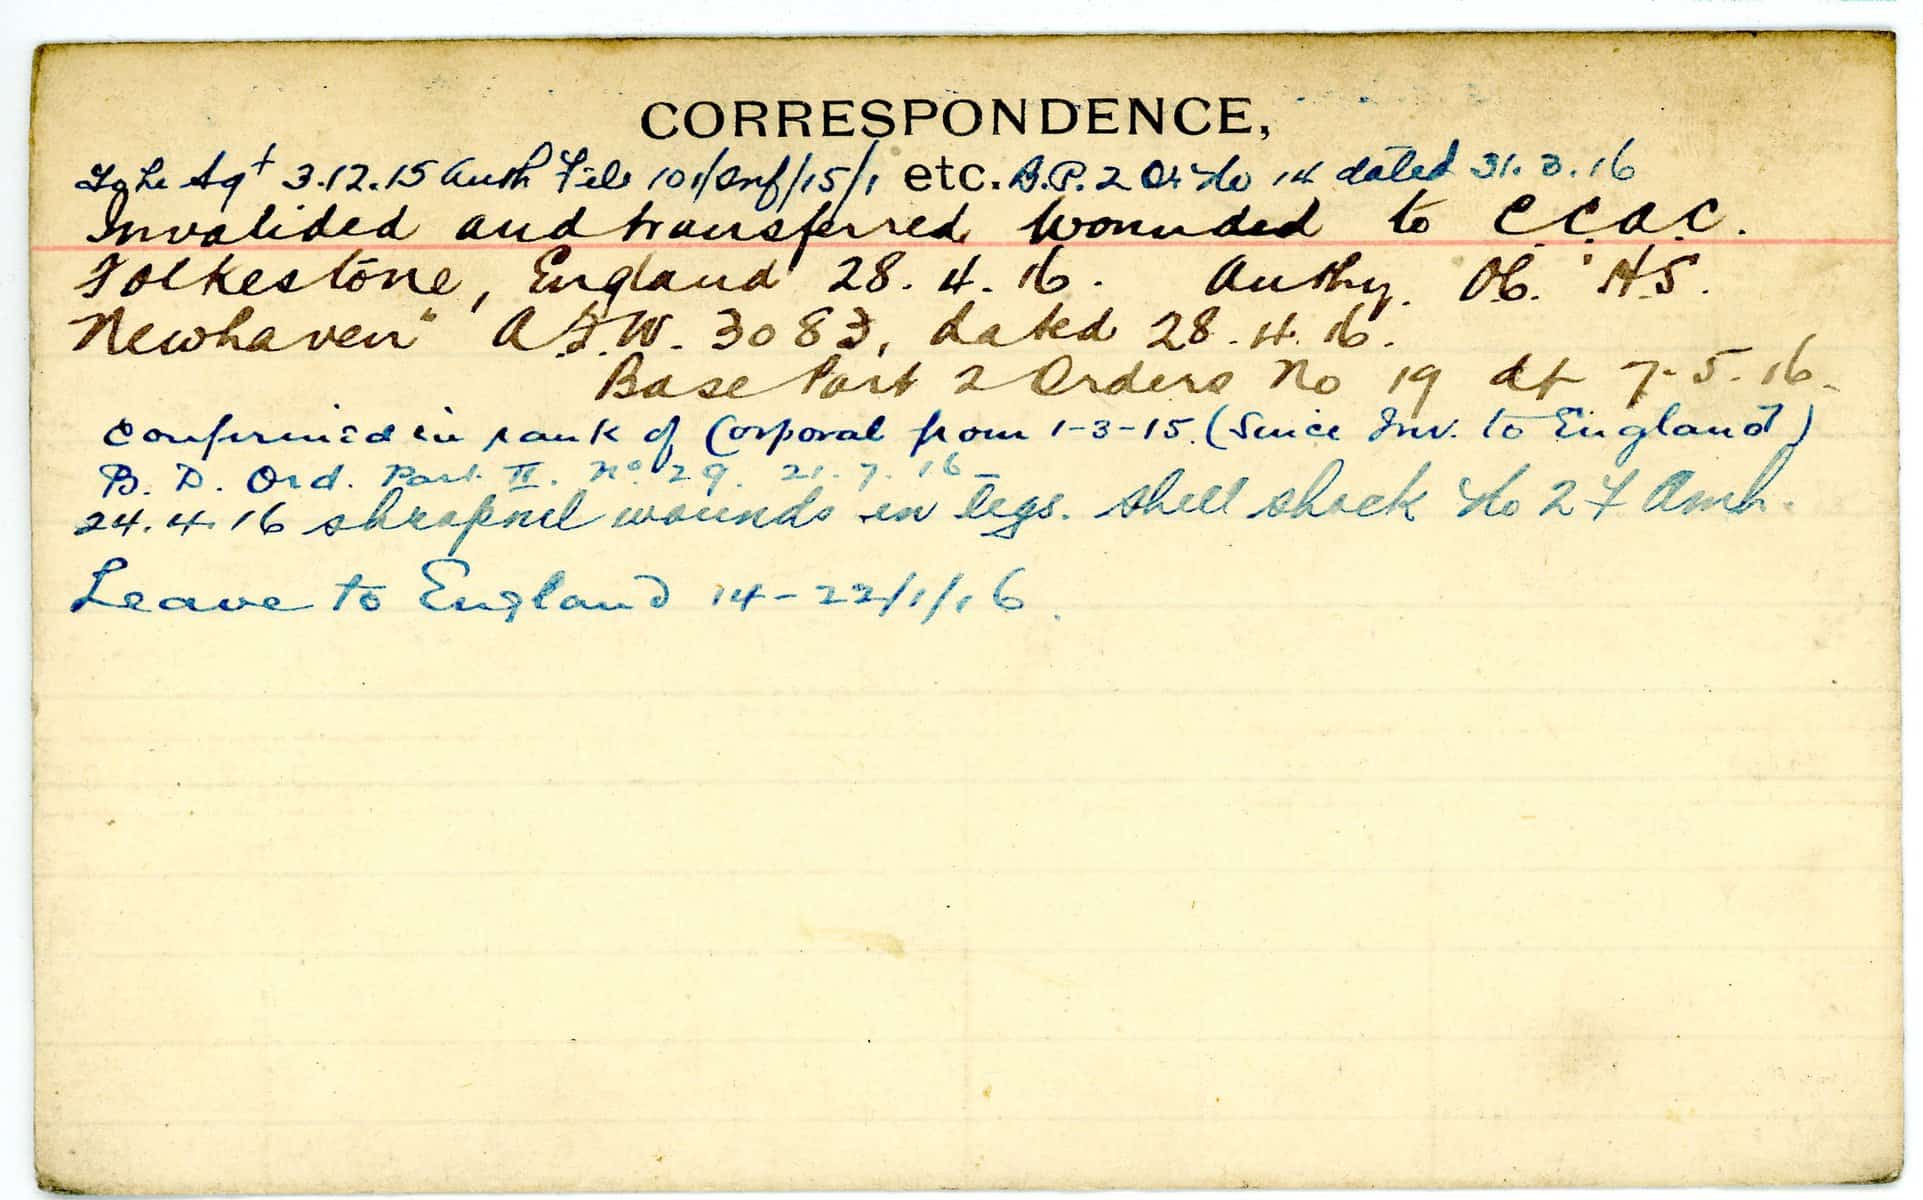 CORRESPONDENCE,
To be Sgt 3.12.15 Auth File 101/Inf/15/1 etc. B.P. 2 O. No 14 dated 31.3.16
Invalided and transferred wounded to C.C.A.C.
Folkestone, England 28.4.16. Authy. H.S.
Newhaven" A.F.W. 3083, dated 28.4.16.
Base Part 2 Orders No 19 dt 7-5-16
Confirmed in rank of Corporal from 1-3-15. (Since Inv. to England)
B. D. Ord. Part. II. No. 29. 21.7.16-
24.4.16 shrapnel wounds in legs. Shell shock No 2 F Amb.
Leave to England 14-22/1/16.